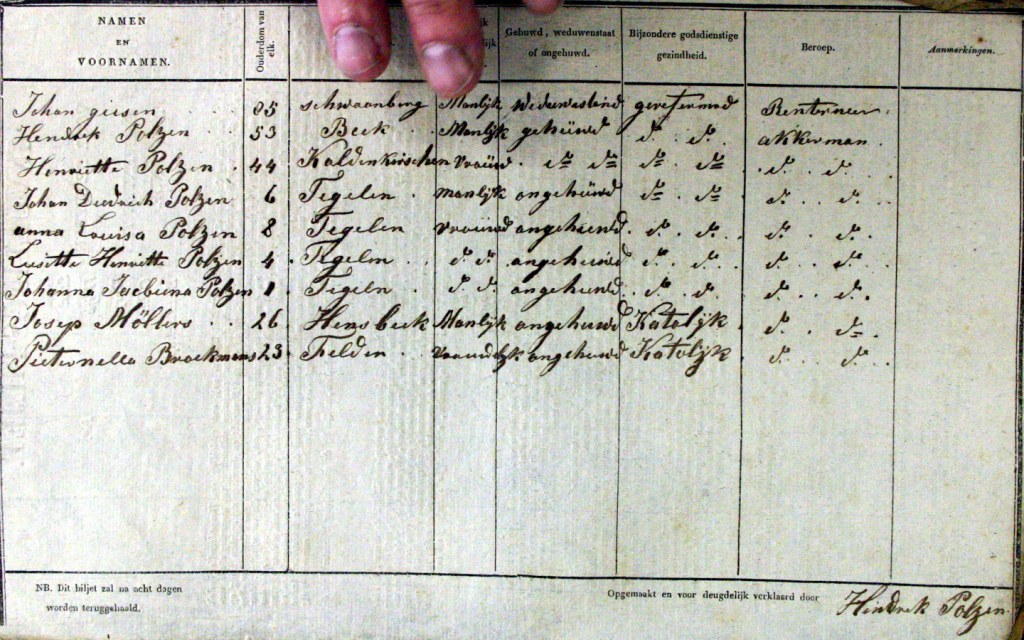 NAMEN EN VOORNAMEN. Ouderdom van elk. Gehuwd, weduwenstaat of ongehuwd. Bijzondere godsdienstige gezindheid. Beroep. Aanmerkingen.
Johan giesen 85 schwaanberg Manlijk gereformed Rentenier
Hendrek Polzen 53 Beek Manlijk gehüwd do. do. akkerman
Henriette Polzen 44 Kaldenkirschen do. do. do. do. do. do.
Johan Diedrich Polzen 6 Tegelen manlijk ongehüwd do. do. do. do.
anna Louisa Polzen 8 Tegelen do. do. do. do.
Lusette Henriette Polzen 4 Tegelen do. do. do. do. do. do.
Johanna Jacbiena Polzen 1 Tegeln do. do. do. do. do. do.
Josep Möllers 26 Hensbeek Manlijk Katolijk do. do.
Pieternella Broekmans 23 Felden Katolijk do. do.
NB. Dit biljet zal na acht dagen
worden teruggehaald.
Opgemaakt en voor deugdelijk verklaard door Hendrek Polzen